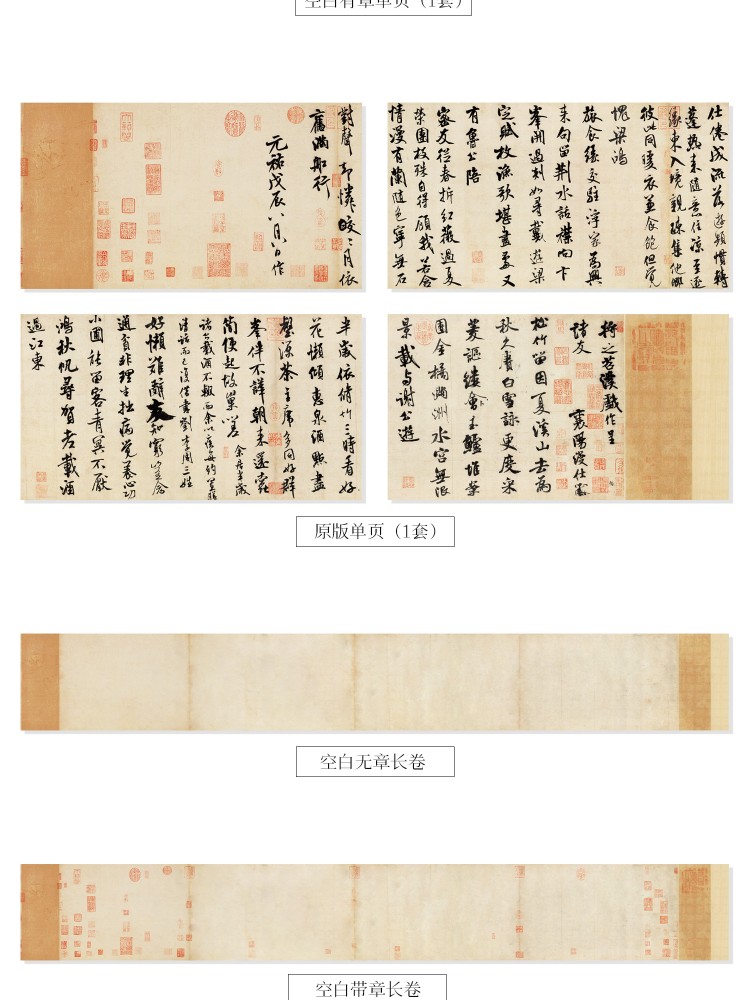 空白有章单页（1套）
將之苕溪戲作呈
諸友
襄陽漫仕黻
松竹留因夏溪山去為
秋久賡白雪詠更度采
菱謳縷會玉鱸堆案
團金橘滿洲水宮無限
景載與謝公遊
半歲依脩竹三時看好
花懶傾惠泉酒點盡
壑源茶主席多同好群
峯伴不譁朝來還蠹
簡便起故巢嗟 余居半歲
諸公載酒不輟而余以疾每約置膳
清話而已復借書劉李周三姓
好懶難辭友知窮豈念
通貧非理生拙病覺養心功
小圃能留客青冥不厭
鴻秋帆尋賀老載酒
過江東
仕倦成流落遊頻慣轉
蓬熱來隨意住涼至逐
緣東入境親疎集他鄉
彼此同暖衣兼食飽但覺
愧梁鴻
旅食緣交駐浮家為興
來句留荊水話襟向卞
峯開過剡如尋戴遊梁
定賦枚漁歌堪畫處又
有魯公陪
密友從春拆紅薇過夏
榮團枝殊自得顧我若含
情漫有蘭隨色寧無石
對聲却憐皎皎月依
舊滿船行
元祐戊辰八月八日作
原版单页（1套）
空白无章长卷
空白带章长卷